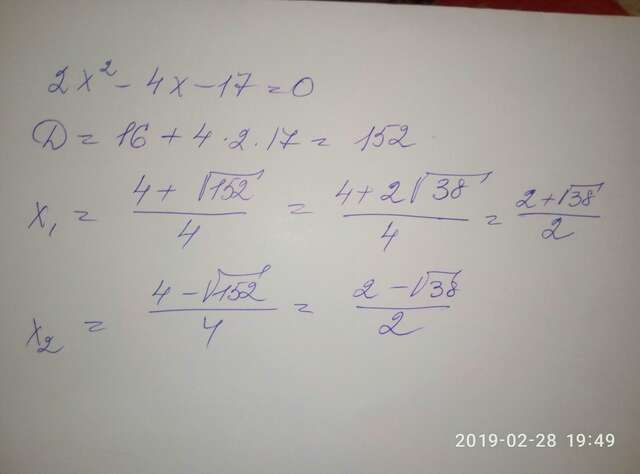 2x² - 4x - 17 = 0
D = 16 + 4·2·17 = 152
x₁ = (4 + √152)/4 = (4 + 2√38)/4 = (2 + √38)/2
x₂ = (4 - √152)/4 = (2 - √38)/2
2019-02-28 19:49